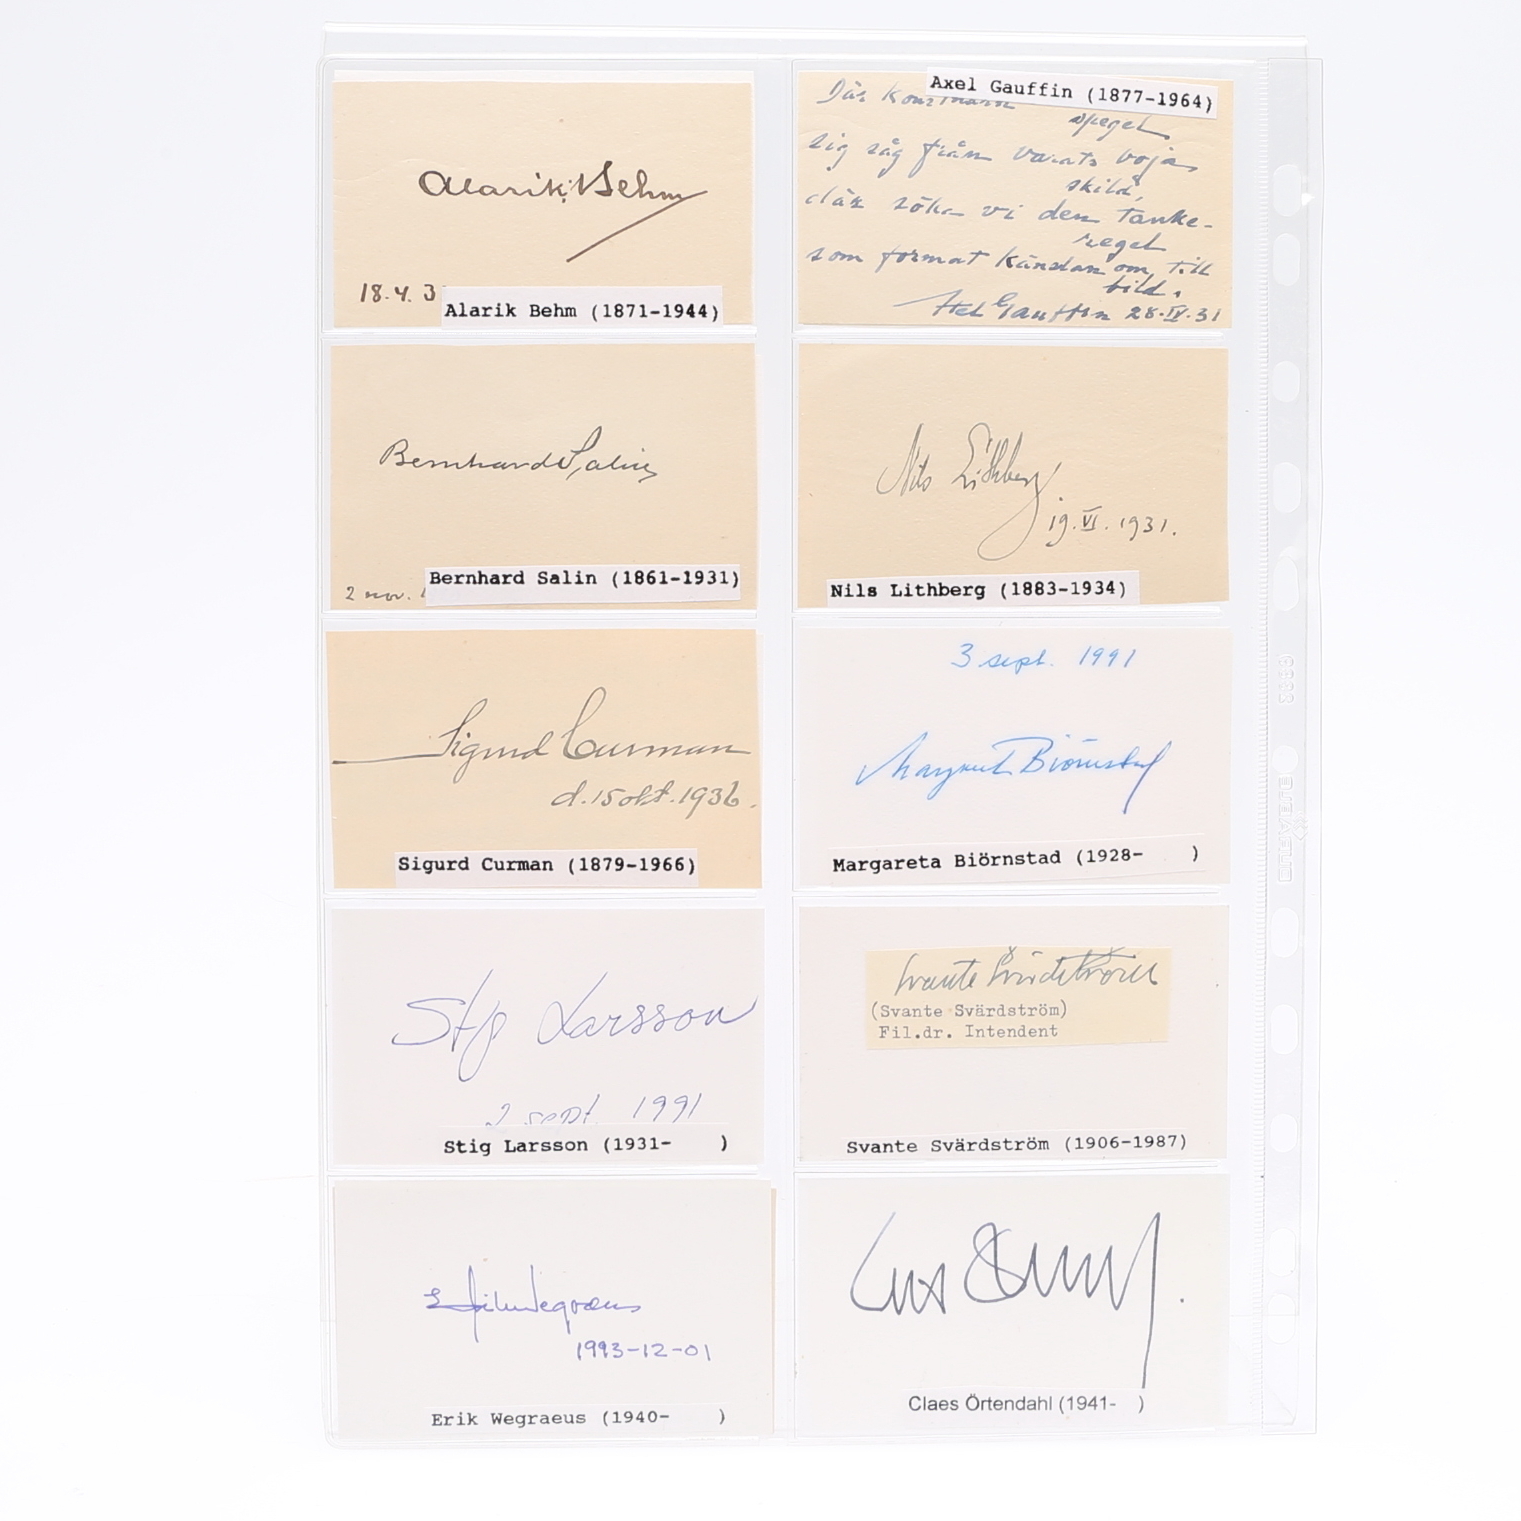 Alarik Behm
18.4.3
Alarik Behm (1871-1944)
Axel Gauffin (1877-1964)
Där konstnären
spegel
sig såg från varats böja
skild,
där söka vi den tanke-
regel
som format känslan om, till
bild.
Axel Gauffin 28.IV.31
Bernhard Salin
2 nov.
Bernhard Salin (1861-1931)
Nils Lithberg
19.VI.1931.
Nils Lithberg (1883-1934)
Sigurd Curman
d.15 okt.1936.
Sigurd Curman (1879-1966)
3 sept. 1991
Margareta Biörnstad
Margareta Biörnstad (1928- )
Stig Larsson
2 sept. 1991
Stig Larsson (1931- )
Svante Svärdström
(Svante Svärdström)
Fil.dr. Intendent
Svante Svärdström (1906-1987)
Erik Wegraeus
1993-12-01
Erik Wegraeus (1940- )
Claes Örtendahl (1941- )